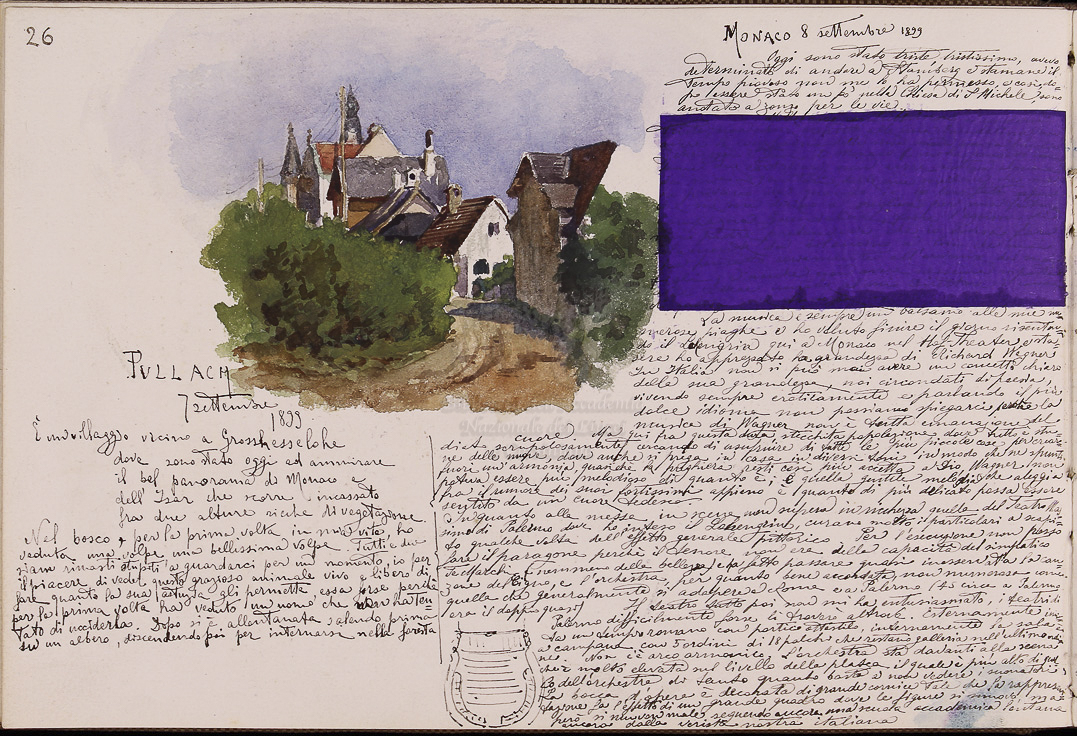 26
MONACO 8 settembre 1899
Oggi sono stato triste tristissimo, avevo
determinato di andare a Starnberg e stamane il
tempo piovoso non me lo ha permesso, e così, do-
po essere stato un pò nella Chiesa di S. Michele, sono
andato a zonzo per le vie.
La musica è sempre un balsamo alle mie nu-
merose piaghe e ho voluto finire il giorno risenten-
do il Lohengrin qui a Monaco nel Hof-Theater e sta-
sera ho apprezzato la grandezza di Richard Wagner
In Italia non si può mai avere un concetto chiaro
della sua grandezza, noi circondati di poesia,
vivendo sempre eroticamente e parlando il più
dolce idioma non possiamo spiegarci perché la
musica di Wagner non è tutta emanazione del
cuore! Ma qui fra questa dura stecchita popolazione dove tutti si stu-
diano nelle più piccole cose per crear-
ne delle nuove, dove anche si prega in casa in diversi toni in modo che ne spunti
fuori un'armonia quasi che la preghiera resti così più accetta a Dio, Wagner non
poteva essere più melodioso di quanto è; e quelle gentile melodie che aleggia
fra il rumore dei suoi fortissimi appieno è quanto di più delicato possa essere
sentito da un cuore tedesco.
In quanto alla messa in scena non supera in ricchezza quella del Teatro Mas-
simo di Palermo dove ho inteso il Lohengrin, curano molto i particolari a scapi-
to qualche volta dell'effetto generale pittorico. Per l'esecuzione non posso
fare il paragone perché il tenore non era della capacità del simpatico
De Marchi (nemmeno della bellezza) e ha fatto passare quasi inosservata la can-
zone del Cigno e l'orchestra, per quanto bene accordata, non numerosa come
quella che generalmente si adopera a Roma e a Palermo (l'anno a Palermo
era il doppio quasi)
Il teatro tutto poi non mi ha entusiasmato, i teatri di
Palermo difficilmente forse li troverò altrove, esternamente imi-
ta un tempio romano con portico esastilo, internamente la sala è
a campana, con 5 ordini di 18 palchi che restano galleria nell'ultimo ordi-
ne. Non c'è arco armonico, l'orchestra sta davanti alla scena
che è molto elevata sul livello della platea il quale è più alto di quel-
lo dell'orchestra di tanto quanto basta a non vedere i suonatori
La bocca d'opera è decorata di grande cornice tale da la rappresen-
tazione fa l'effetto di un grande quadro dove le figure si muovono, ma
però si muovono male seguendo ancora una scuola accademica lontana
ancora dalla verista nostra italiana
PULLACH
7 settembre
1899
È un villaggio vicino a Grosshesselohe
dove sono stato oggi ad ammirare
il bel panorama di Monaco e
dell'Isar che scorre incassato
fra due alture ricche di vegetazione.
Nel bosco e per la prima volta in mia vita, ho
veduta una volpe, una bellissima volpe. Tutti e due
siam rimasti stupiti a guardarci per un momento, io per
il piacere di veder questo grazioso animale vivo e libero di
fare quanto la sua astuzia gli permetta, essa forse perché
per la prima volta ha veduto un uomo che non ha ten-
tato di ucciderla. Dopo si è allontanata salendo prima
su un albero, discendendo poi per internarsi nella foresta